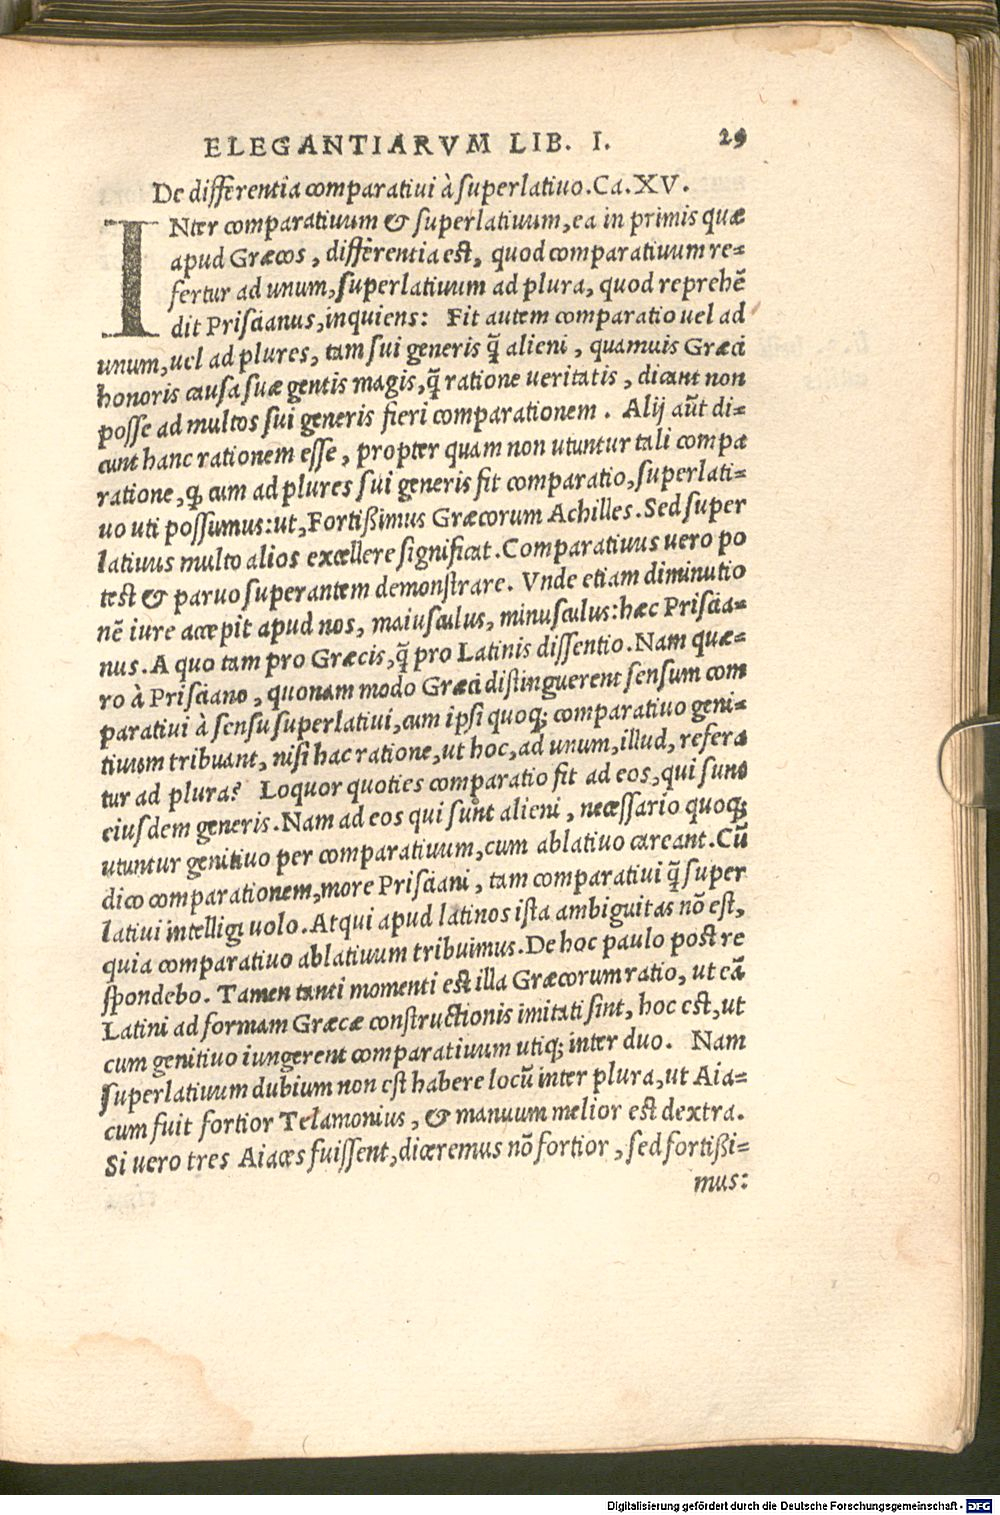 ELEGANTIARVM LIB. I. 29
De differentia comparatiui à superlatiuo. Ca. XV.
INter comparatiuum & superlatiuum, ea in primis quæ
apud Græcos, differentia est, quod comparatiuum re-
fertur ad unum, superlatiuum ad plura, quod reprehē
dit Priscianus, inquiens: Fit autem comparatio uel ad
unum, uel ad plures, tam sui generis q̃ alieni, quamuis Græci
honoris causa suæ gentis magis, q̃ ratione ueritatis, dicant non
posse ad multos sui generis fieri comparationem. Alij aūt di-
cunt hanc rationem esse, propter quam non utuntur tali compa
ratione, ꝙ cum ad plures sui generis fit comparatio, superlati-
uo uti possumus: ut, Fortißimus Græcorum Achilles. Sed super
latiuus multo alios excellere significat. Comparatiuus uero po
test & paruo superantem demonstrare. Vnde etiam diminutio
nē iure accepit apud nos, maiusculus, minusculus: hæc Priscia-
nus. A quo tam pro Græcis, q̃ pro Latinis dissentio. Nam quæ-
ro à Prisciano, quonam modo Græci distinguerent sensum com
paratiui à sensu superlatiui, cum ipsi quoq; comparatiuo geni-
tiuum tribuant, nisi hac ratione, ut hoc, ad unum, illud, refera
tur ad plura? Loquor quoties comparatio fit ad eos, qui sunt
eiusdem generis. Nam ad eos qui sunt alieni, necessario quoq;
utuntur genitiuo per comparatiuum, cum ablatiuo careant. Cū
dico comparationem, more Prisciani, tam comparatiui q̃ super
latiui intelligi uolo. Atqui apud latinos ista ambiguitas nō est,
quia comparatiuo ablatiuum tribuimus. De hoc paulo post re
spondebo. Tamen tanti momenti est illa Græcorum ratio, ut eā
Latini ad formam Græcæ constructionis imitati sint, hoc est, ut
cum genitiuo iungerent comparatiuum utiq; inter duo. Nam
superlatiuum dubium non est habere locū inter plura, ut Aia-
cum fuit fortior Telamonius, & manuum melior est dextra.
Si uero tres Aiaces fuissent, diceremus nō fortior, sed fortißi-
mus:
Digitalisierung gefördert durch die Deutsche Forschungsgemeinschaft - DFG